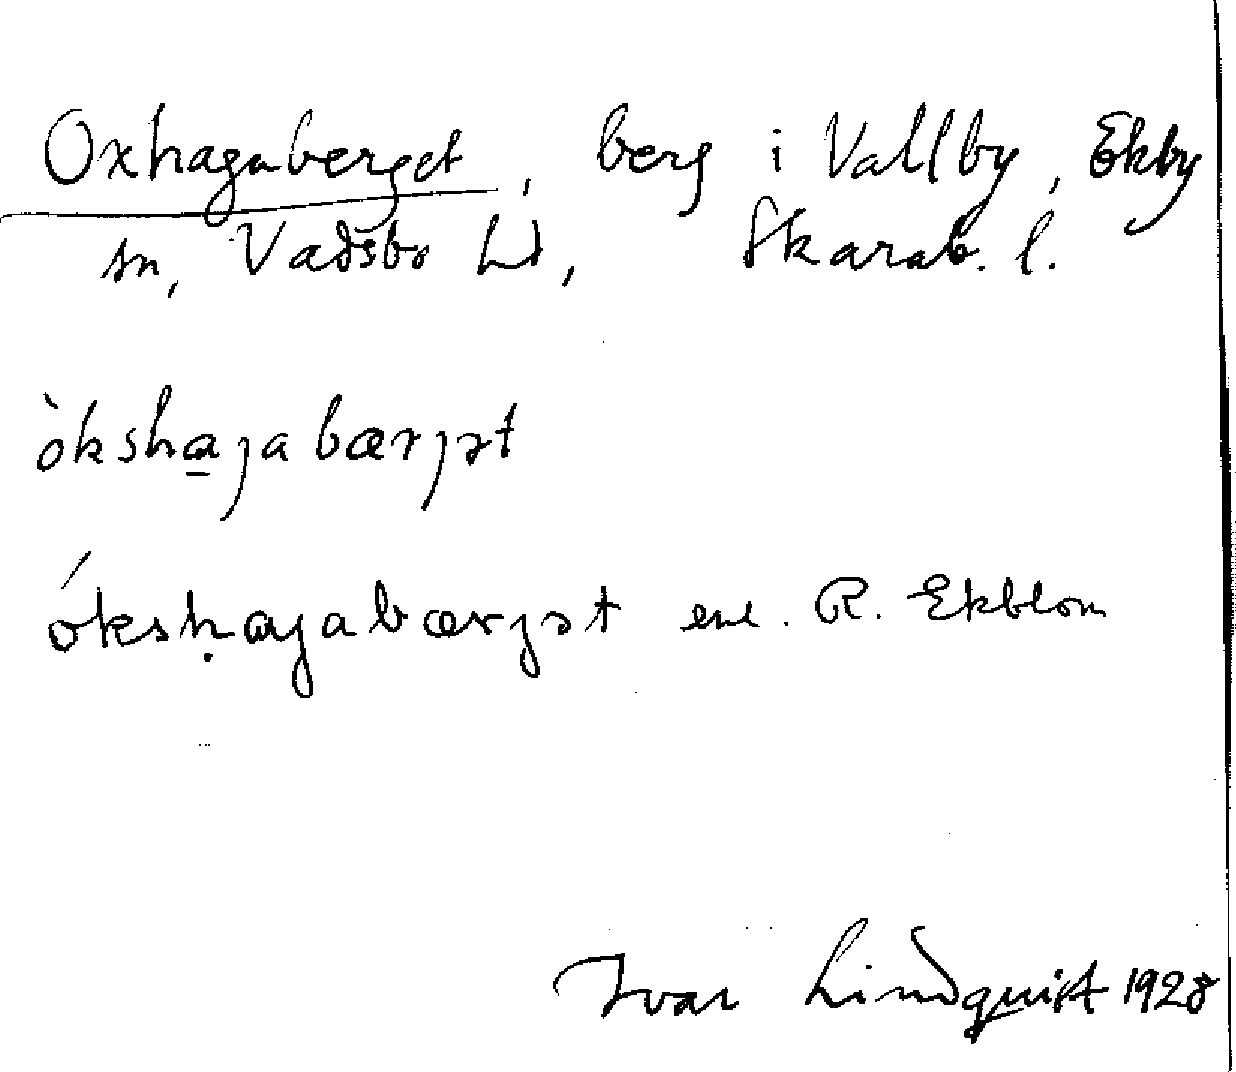 Oxhagaberget, berg i Vallby, Ekby
sn, Vadsbo hd, Skarab. l.
òksha̲ȷabærȷət
óksḥaȷabærȷət enl. R. Ekblom
Ivar Lindquist 1928